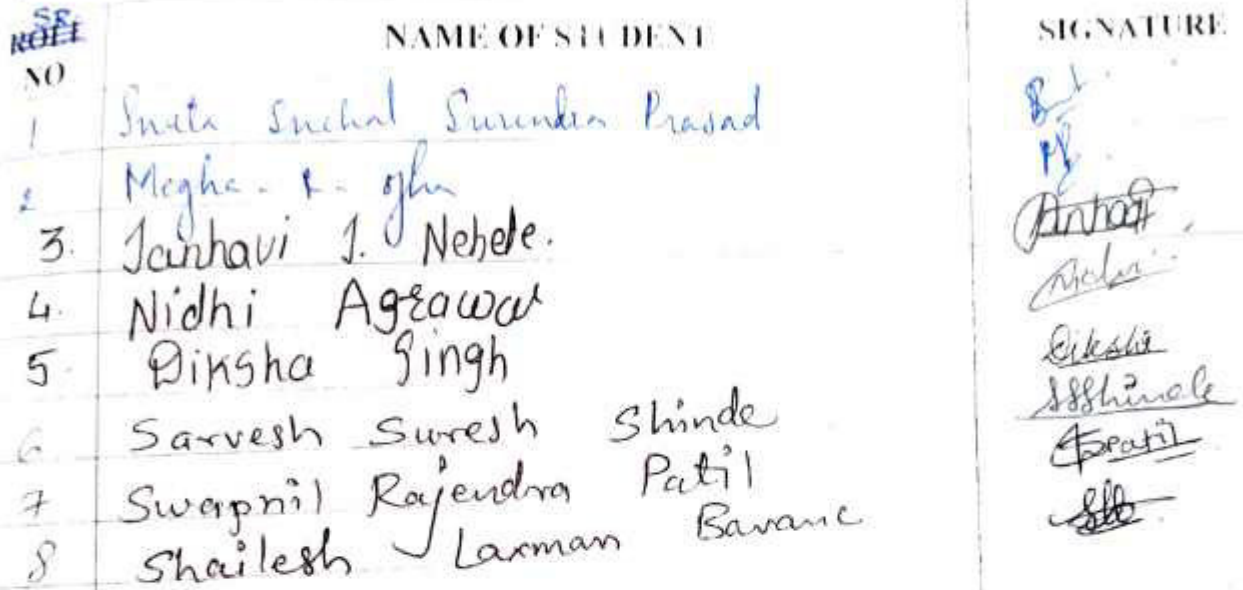 SR.
ROLL NO NAME OF STUDENT SIGNATURE
1 Surendra Prasad
2 Megha. R.
3. Janhavi J. Nehete. Janhavi
4. Nidhi Agrawal
5 Diksha Singh Diksha
6 Sarvesh Suresh Shinde SSShinde
7 Swapnil Rajendra Patil SPatil
8 Shailesh Laxman Bavane